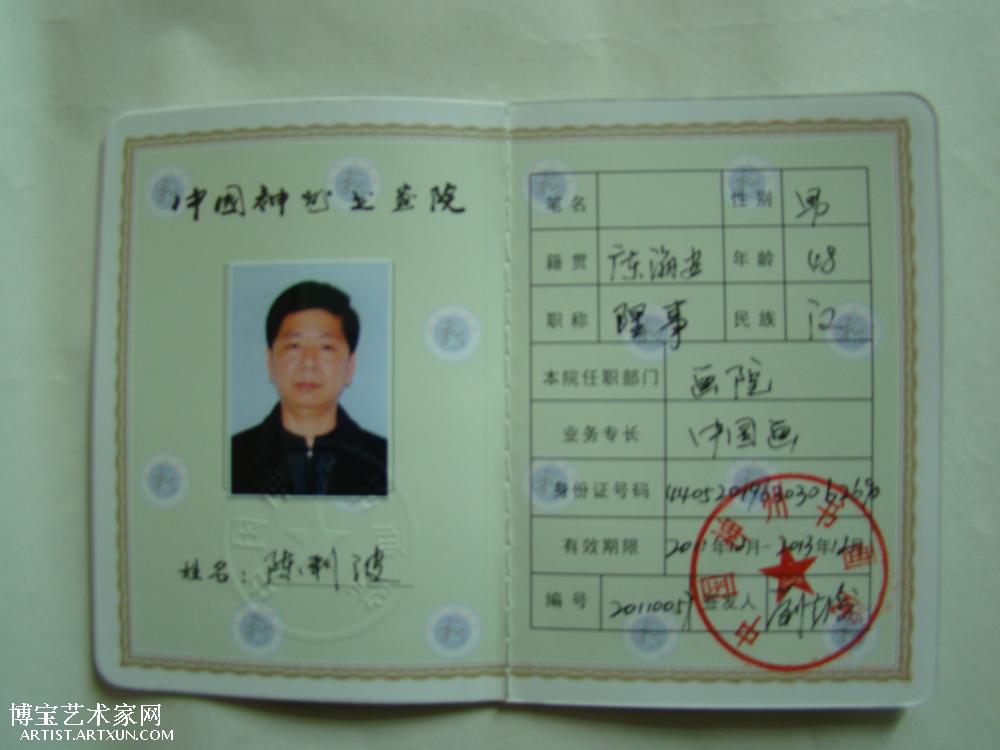 中国神州书画院
姓名：陈利波
笔名 性别 男
籍贯 广东潮安 年龄 48
职称 理事 民族 汉
本院任职部门 画院
业务专长 中国画
身份证号码
有效期限 2011年12月-2013年12月
编号 2011005 签发人
中国神州书画院
博宝艺术家网
ARTIST.ARTXUN.COM